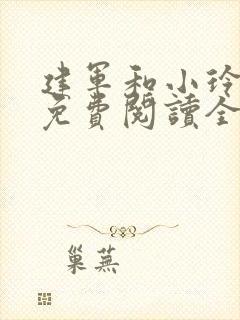 建軍和小玲
免費閱讀全
巢蕪